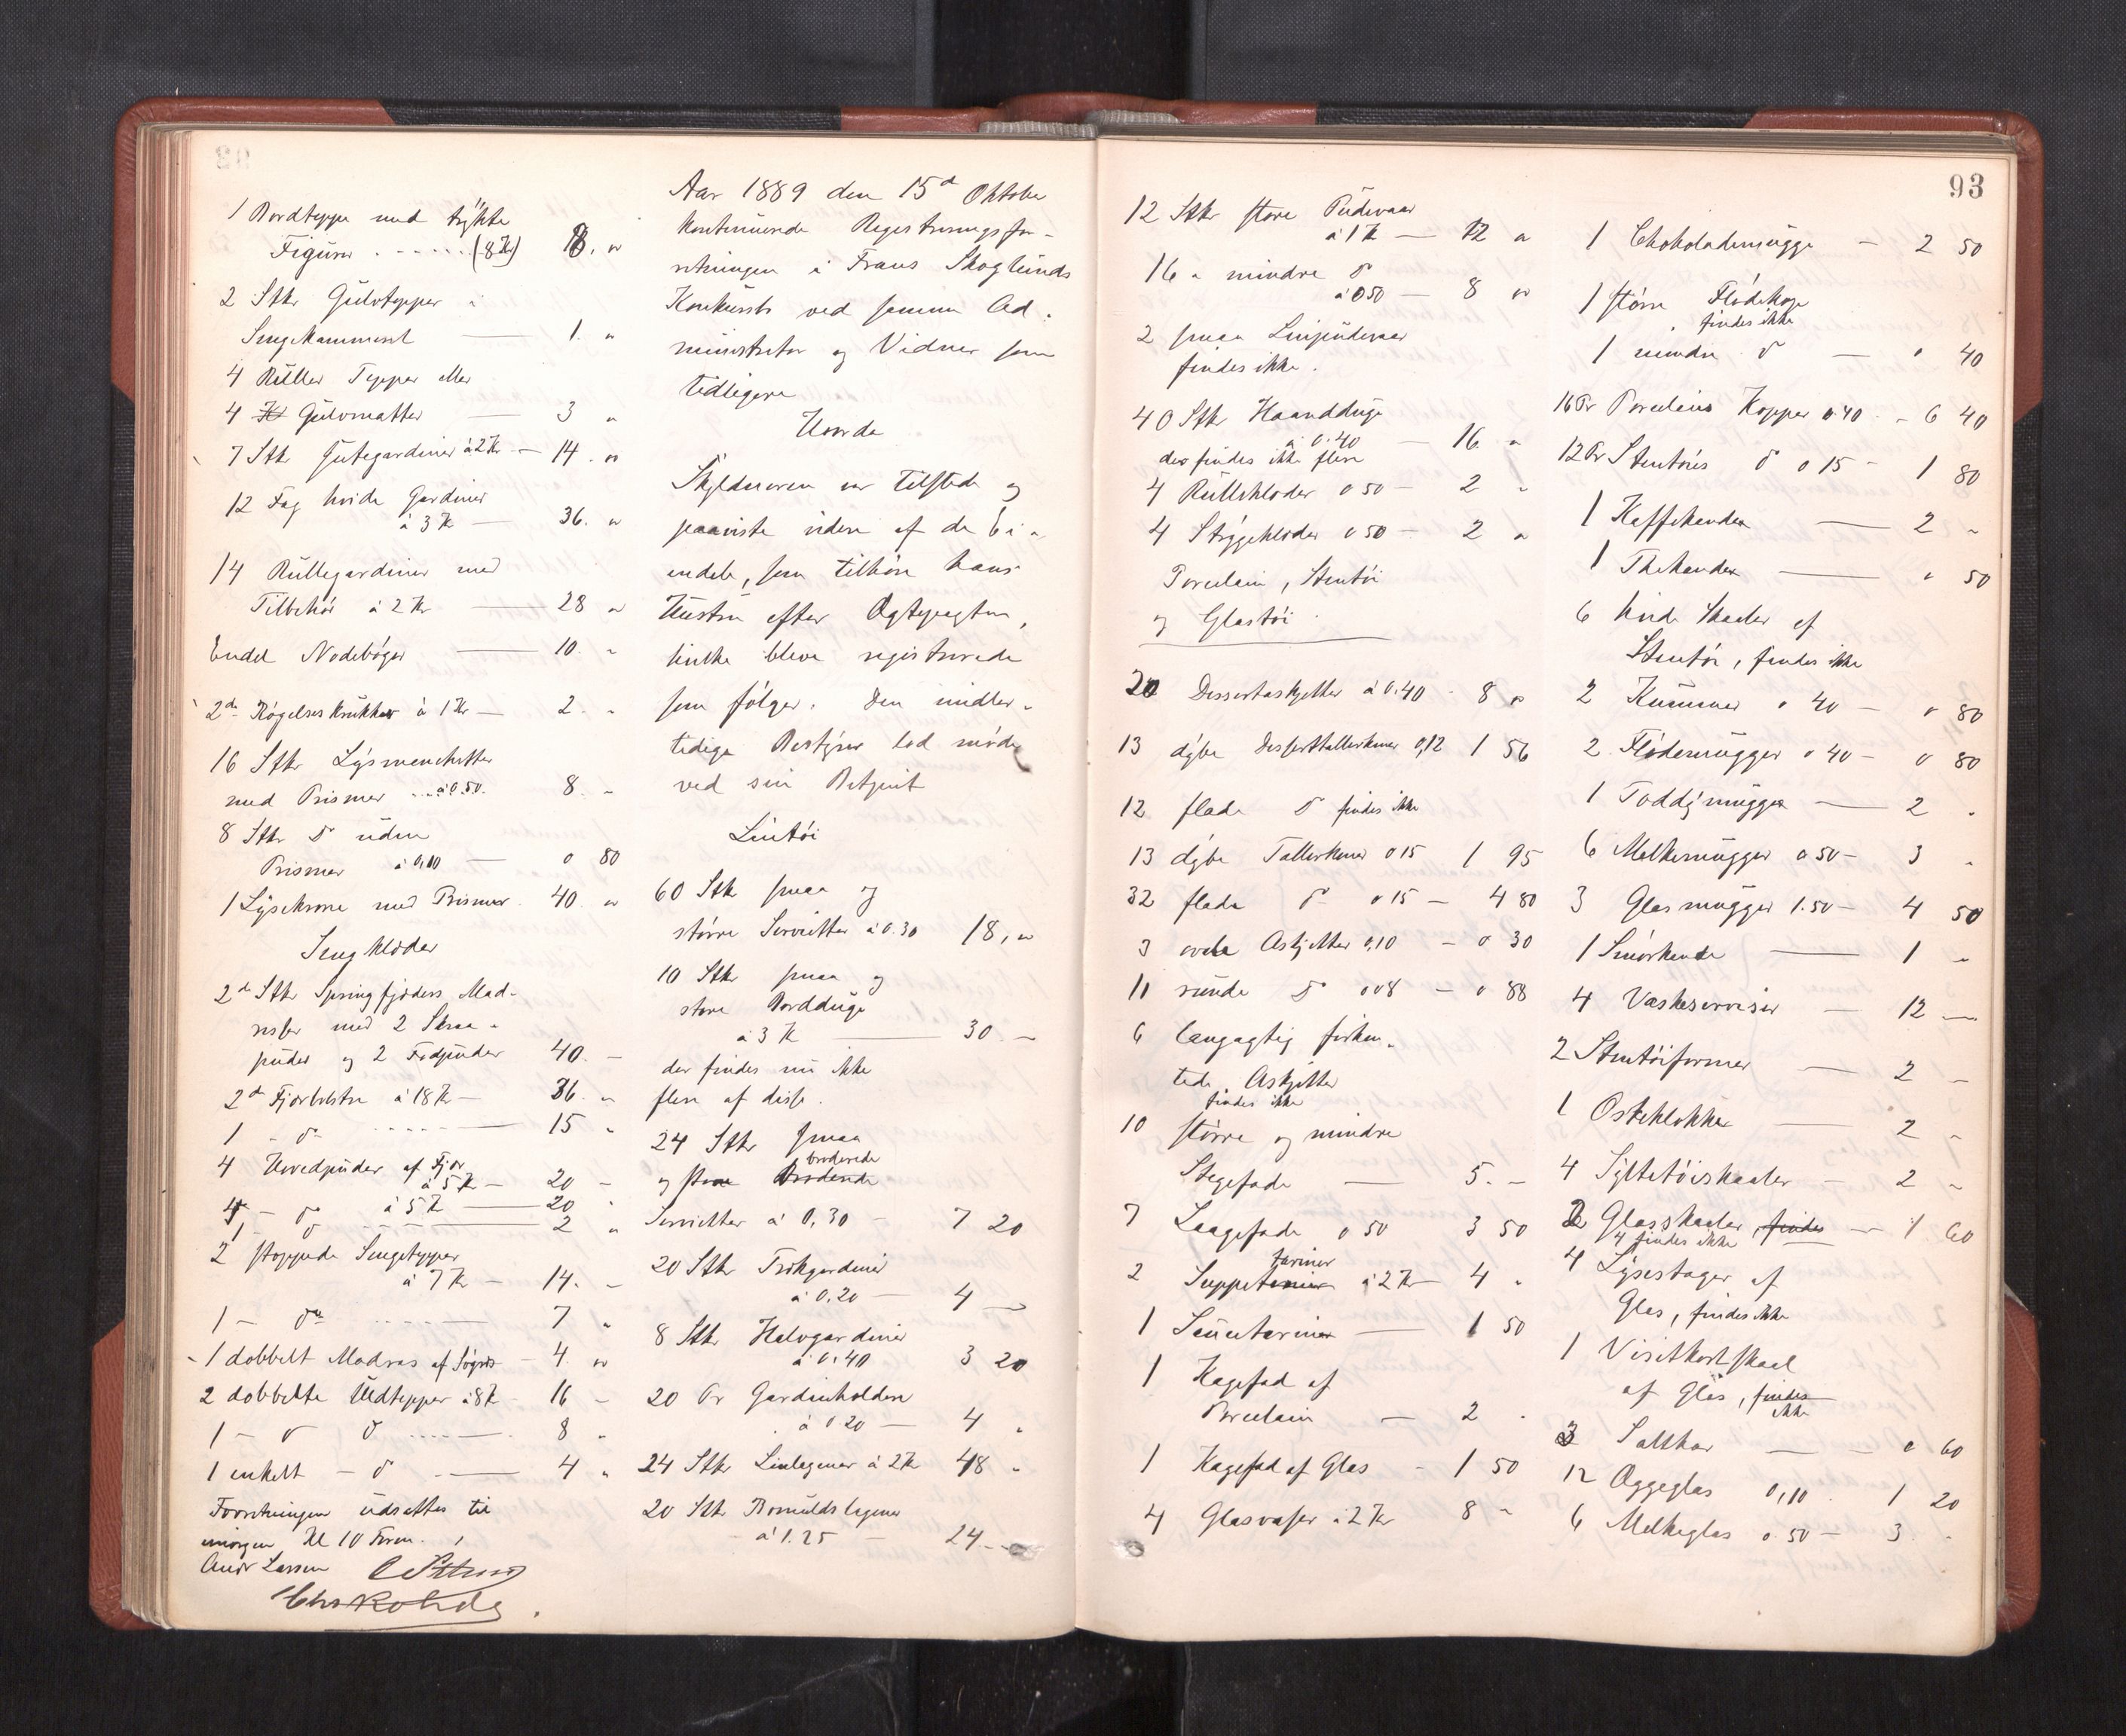 1 Bordteppe med trykte
Figurer . - - - - (8 Kr) 8. "
2 Stkr Gulvtepper i
Sengekammeret — 1. "
4 Ruller Tepper eller
4 Gulvmatter — 3 "
7 Stk Gutegardiner à 2 Kr — 14. "
12 Fag hvide Gardiner
à 3 Kr — 36. "
14 Rullegardiner med
Tilbehör à 2 Kr — 28 "
Endel Nodebøger — 10. "
2 de Røgelseskrukker à 1 Kr — 2. "
16 Stkr Lysmanchetter
med Prismer à 0.50. 8. "
8 Stkr do uden
Prismer à 0,10 — 0 80
1 Lysekrone med Prismer. 40. "
Sengklæder
2 de Stkr Springfjæders Mad-
resser med 2 Skraa-
puder og 2 Fodpuder 40. —
2 de Fjærbolstre à 18 Kr — 36. "
1 - do - - - - 15 "
4 Hovedpuder af Fjær
à 5 Kr — 20 —
4 - do à 5 Kr — 20 "
1 - do - - - 2 "
2 stoppede Sengetepper
à 7 Kr — 14. —
1 - do - - - - 7 "
1 dobbelt Madras af Søgræs — 4. "
2 dobbelte Uldtepper à 8 Kr 16 —
1 - do do - - - - 8 "
1 enkelt - do - — 4 "
Forretningen udsattes til
imorgen Kl 10 Form.
Andr Larsen
Aar 1889 den 15de Oktober
kontinuerede Registreringsfor-
retningen i Frans Skoglunds
Konkursbo ved samme Ad-
ministrator og Vidner som
tidligere
Hvorda
Skyldneren var tilstede og
paaviste videre af de Ei-
endele, som tilhöre hans
Hustru efter Ægtepagten,
hvilke bleve registrerede
som følger. Den midler-
tidige Bestyrer lod møde
ved sin Betjent
Lintøi
60 Stk smaa og
større Servietter à 0.30 18, "
10 Stkr smaa og
store Bordduge
à 3 Kr — 30. —
der findes nu ikke
flere af disse.
24 Stkr smaa
og store broderede
Servietter à 0,30 — 7 20
20 Stkr Trækgardiner
à 0,20 — 4 —
8 Stkr Halvgardiner
à 0.40 3 20
20 Pr Gardinholdere
à 0 20 — 4 "
24 Stkr Linlagener à 2 Kr 48 "
20 Stkr Bomuldslagener
à 1.25 — 24. —
93
12 Stkr store Pudevaar
à 1 Kr — 12 "
16 " mindre do
à 0 50 — 8 "
2 smaa Linpudevaar
findes ikke.
40 Stkr Haandduge
à 0.40 — 16. "
der findes ikke flere
4 Rulleklæder 0 50 — 2 "
4 Strygeklæder 0 50 — 2 "
Porcelain, Stentöi
og Glastöi
20 Dessertaskjetter à 0.40 - 8 "
13 dybe Desserttallerkener 0,12 1 56
12 flade do findes ikke
13 dybe Tallerkener 0 15 1 95
32 flade do 0 15 — 4 80
3 ovale Askjetter 0,10 — 0 30
11 runde do 0 08 — 0 88
6 langagtig firkan-
tede Askjetter
findes ikke
10 større og mindre
Stegefade — 5. —
7 Laagefade 0 50 3 50
2 Suppeteriner à 2 Kr — 4 "
1 Saucetarine — 1 50
1 Kagefad af
Porcelain — 2 -
1 Kagefad af Glas - 1 50
4 Glasvaser à 2 Kr 8 "
1 Chokolademugge — 2 50
1 større Flödekop
findes ikke
1 mindre do — 0 40
16 Pr Porcelains Kopper 0.40 - 6 40
12 Pr Stentöies do 0 15 - 1 80
1 Kaffekande — 2 "
1 Thekande — 0 50
6 hvide Skaaler af
Stentöi, findes ikke
2 Kummer 0 40 — 0 80
2 Flödemugger 0 40 — 0 80
1 Toddymugge — 2 -
6 Melkemugger 0 50 — 3 "
3 Glasmugger 1.50 — 4 50
1 Smörkande — 1 "
4 Vaskeserviser — 12 —
2 Stentöiformer — 2 —
1 Osteklokke — 2 "
4 Syltetöiskaaler — 2 "
2 Glasskaaler findes — 1 60
4 findes ikke
4 Lysestager af
Glas, findes ikke
1 Visitkortskaal
af Glas, findes
ikke
3 Saltkar — 0 60
12 Æggeglas 0,10 1 20
6 Melkeglas 0.50 — 3. -